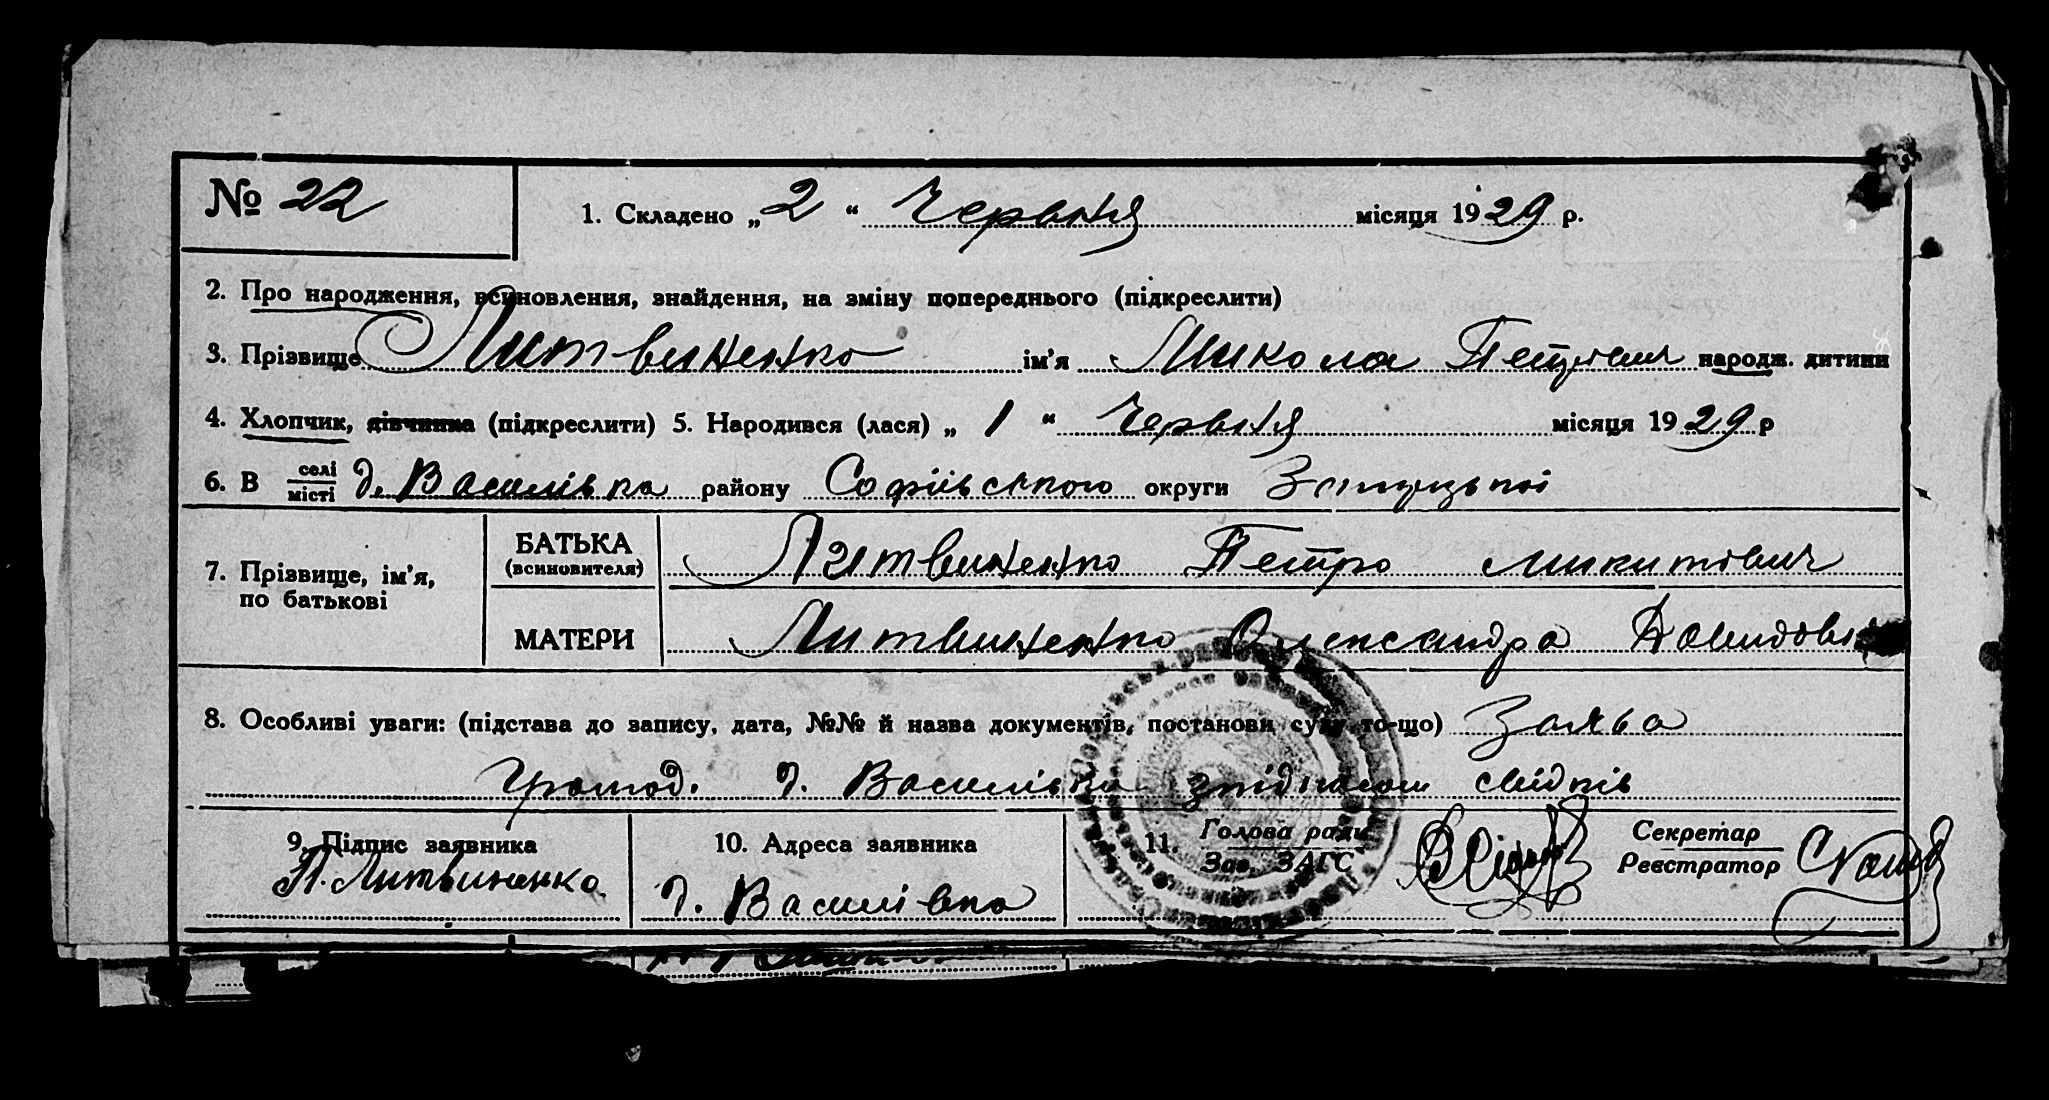 № 22
1. Складено „ 2 “ Червня місяця 1929 р.
2. Про народження, всиновлення, знайдення, на зміну попереднього (підкреслити)
3. Прізвище Литвиненко ім’я Микола Петрович народж. дитини
4. Хлопчик, дівчинка (підкреслити) 5. Народився (лася) „ 1 “ Червня місяця 1929 р
6. В селі місті д. Василівка району Софіівського округи
7. Прізвище, ім’я, по батькові
БАТЬКА (всиновителя) Литвиненко Петро Микитович
МАТЕРИ Литвиненко Олександра
8. Особливі уваги: (підстава до запису, дата, №№ й назва документів, постанови суду то-що) Заява
Громод. д. Василівка свідків
9. Підпис заявника
П. Литвиненко
10. Адреса заявника
д. Василівка
11. Голова ради
Зав. ЗАГС
Секретар
Реєстратор